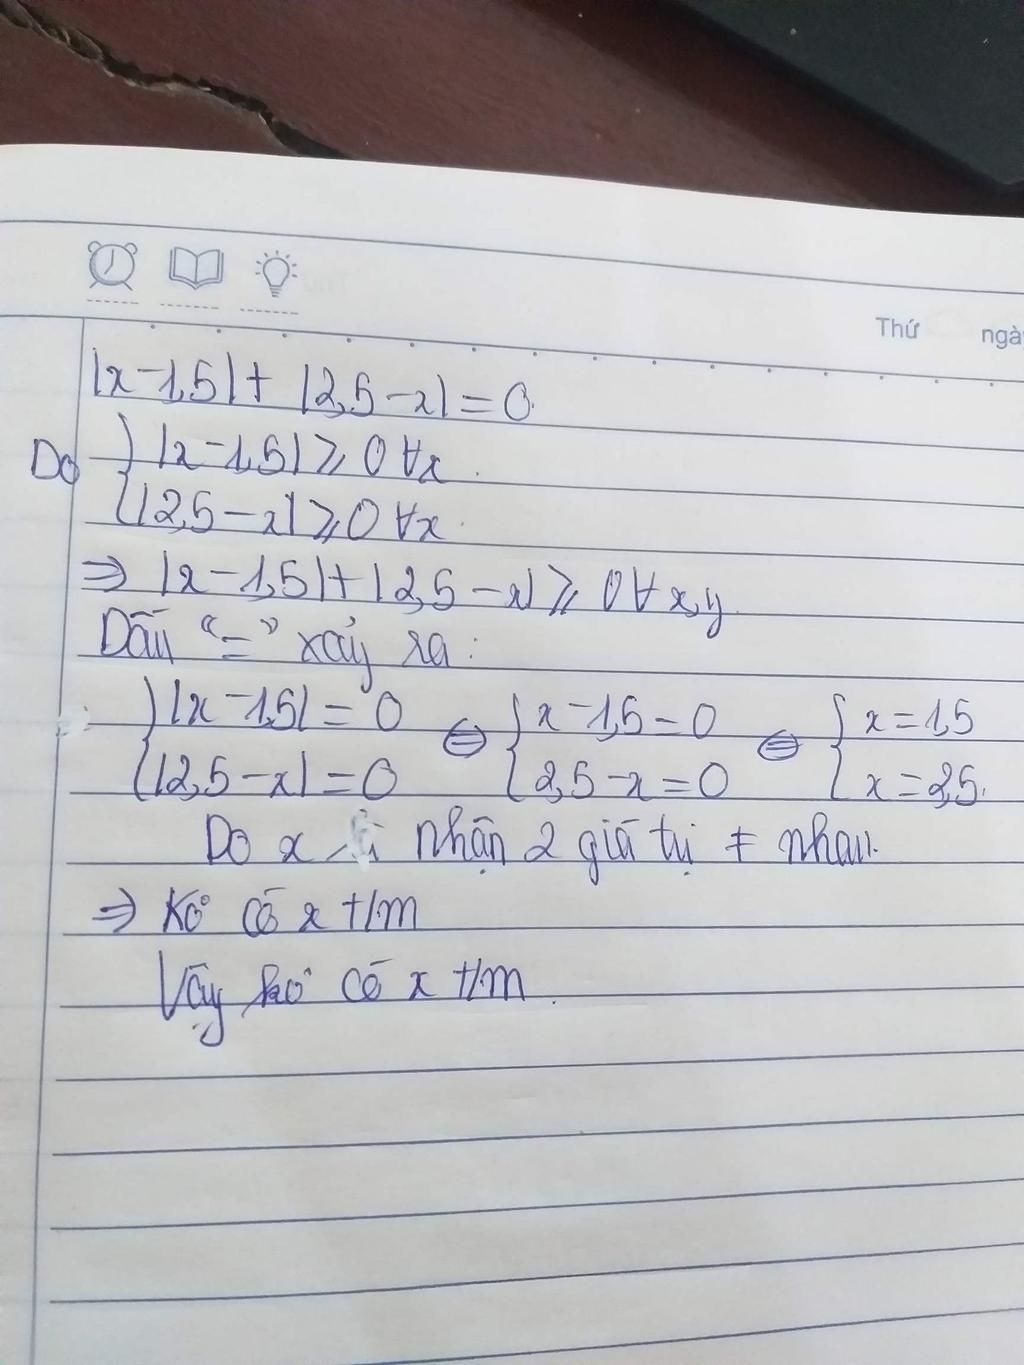 Thứ ngày
|x-1,5|+ |2,5-x|=0.
Do { |x-1,5| ⩾ 0 ∀x.
{ |2,5-x| ⩾ 0 ∀x.
⇒ |x-1,5|+|2,5-x| ⩾ 0 ∀ x,y.
Dấu "=" xảy ra:
{ |x-1,5| = 0 ⇔ { x-1,5=0 ⇔ { x=1,5
{ |2,5-x| = 0 { 2,5-x=0 { x=2,5.
Do x nhận 2 giá trị ≠ nhau.
⇒ Ko có x t/m
Vậy ko có x t/m.